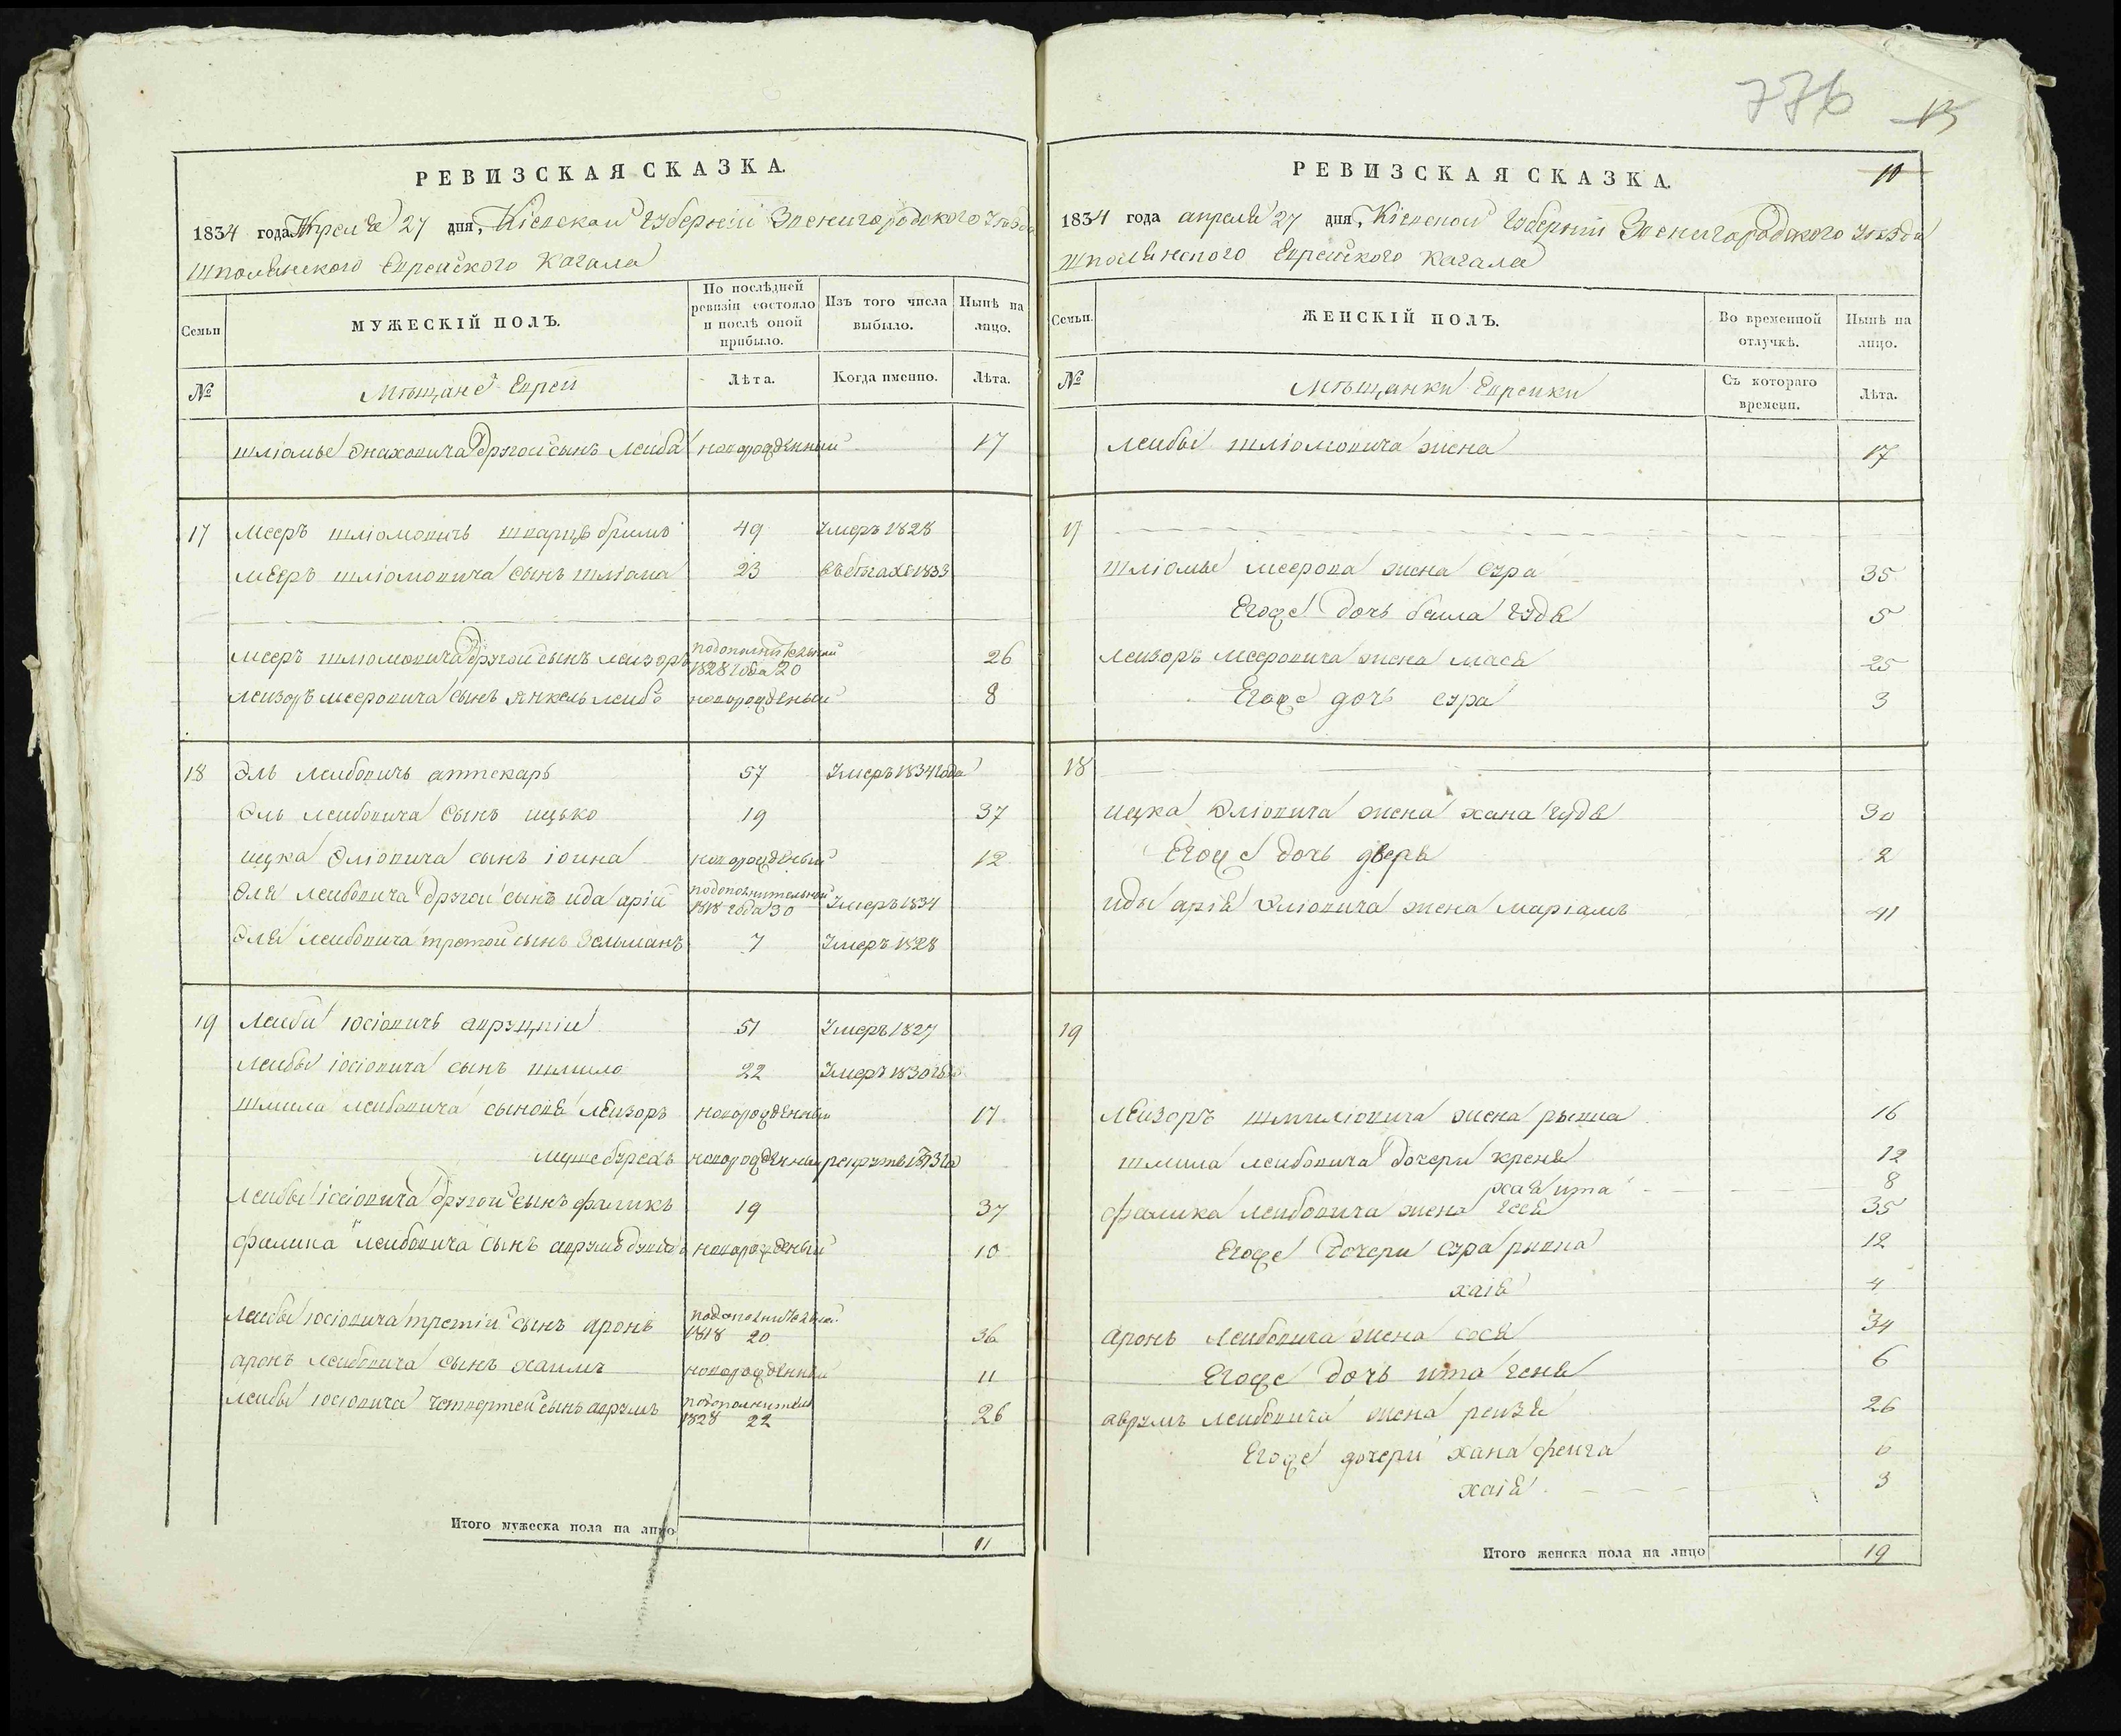 776 13
РЕВИЗСКАЯ СКАЗКА.
1834 года Апреля 27 дня, Кіевской Губерніи Звенигородского Уезда
Шполянского Еврейского Кагала
Семьи
МУЖЕСКІЙ ПОЛЪ.
По послѣдней ревизіи состояло и послѣ оной прибыло.
Изъ того числа выбыло.
Нынѣ на лицо.
№
Мѣщане Евреи
Лѣта.
Когда именно.
Лѣта.
шліомы Энаховича другой сынъ Лейба новорожденный 17
17 Мееръ шліомовичъ шварцъ бримъ 49 Умеръ 1828
Мееръ шліомовича сынъ шліома 23 въ бѣгахъ 1833
Мееръ шліомовича другой сынъ лейзоръ подополнительной 1828 года 20 26
лейзоръ мееровича сынъ янкель лейбъ новорожденный 8
18 Эль Лейбовичъ аптекарь 57 Умеръ 1834 года
Эль лейбовича сынъ ицько 19 37
ицка Эліовича сынъ іоина новорожденый 12
Эля лейбовича другой сынъ ида арій подополнительной 1818 года 30 Умеръ 1834
Эля лейбовича третой сынъ Зельманъ 7 Умеръ 1828
19 Лейба іосіовичъ 51 Умеръ 1827
лейбы іосіовича сынъ шмило 22 Умеръ 1830 года
шмила лейбовича сыновя лейзоръ новорожденный 17
новорожденный
лейбы іосіовича другой сынъ фаликъ 19 37
фалика лейбовича сынъ аврумъ новорожденый 10
лейбы іосіовича третій сынъ аронъ подополнительной 1818 20 36
аронъ лейбовича сынъ хаимъ новорожденный 11
лейбы іосіовича четвертей сынъ аврумъ подополнител 1828 22 26
Итого мужеска пола на лицо 11
РЕВИЗСКАЯ СКАЗКА.
10
1834 года апреля 27 дня, Кіевской Губерніи Звенигородского Уезда
Шполянского Еврейского Кагала
Семьи.
ЖЕНСКІЙ ПОЛЪ.
Во временной отлучкѣ.
Нынѣ на лицо.
№
Мѣщанки Еврейки
Съ котораго времени.
Лѣта.
лейбы шліомовича жена 17
17
шліомы меерова жена сура 35
Егоже дочь бейла гудя 5
лейзоръ мееровича жена мася 25
Егоже дочь сура 3
18
ицка Эліовича жена хана гудя 30
Егоже дочь дверя 2
иды арія Эліовича жена маріамъ 41
19
лейзоръ шмиліовича жена рывка 16
шмила лейбовича дочери креня 12
хая ита 8
фалика лейбовича жена геся 35
Егоже дочери сура ривка 12
хаія 4
аронъ лейбовича жена сося 34
Егоже дочь ита геня 6
аврумъ лейбовича жена рейзя 26
Егоже дочери хана фейга 6
хаія 3
Итого женска пола на лицо 19